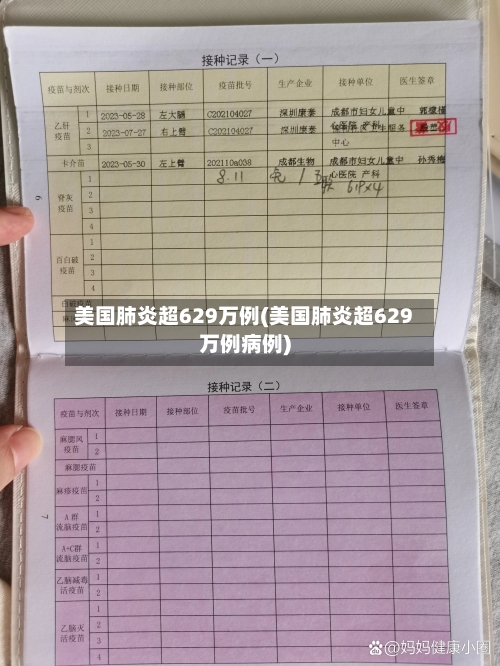 接种记录（一）
疫苗与剂次 接种日期 接种部位 疫苗批号 生产企业 接种单位 医生签章
乙肝疫苗 1 2023-05-28 左大腿 C202104027 深圳康泰 成都市妇女儿童中心医院 产科
2 2023-07-27 右上臂 C202104027 深圳康泰 中心
3
卡介苗 2023-05-30 左上臂 202110a038 成都生物 成都市妇女儿童中心医院 产科 孙秀梅
脊灰疫苗 1 8.11
2
3
4
百白破疫苗 1
2
3
4
美国肺炎超629万例(美国肺炎超629
万例病例)
接种记录（二）
疫苗与剂次 接种日期 接种部位 疫苗批号 生产企业 接种单位 医生签章
麻腮风疫苗 1
2
麻腮疫苗
麻疹疫苗 1
2
A 群流脑疫苗 1
2
A+C群流脑疫苗 1
2
乙脑减毒活疫苗 1
2
乙脑灭活疫苗 1
2
3
4
6
7
@妈妈健康小圈